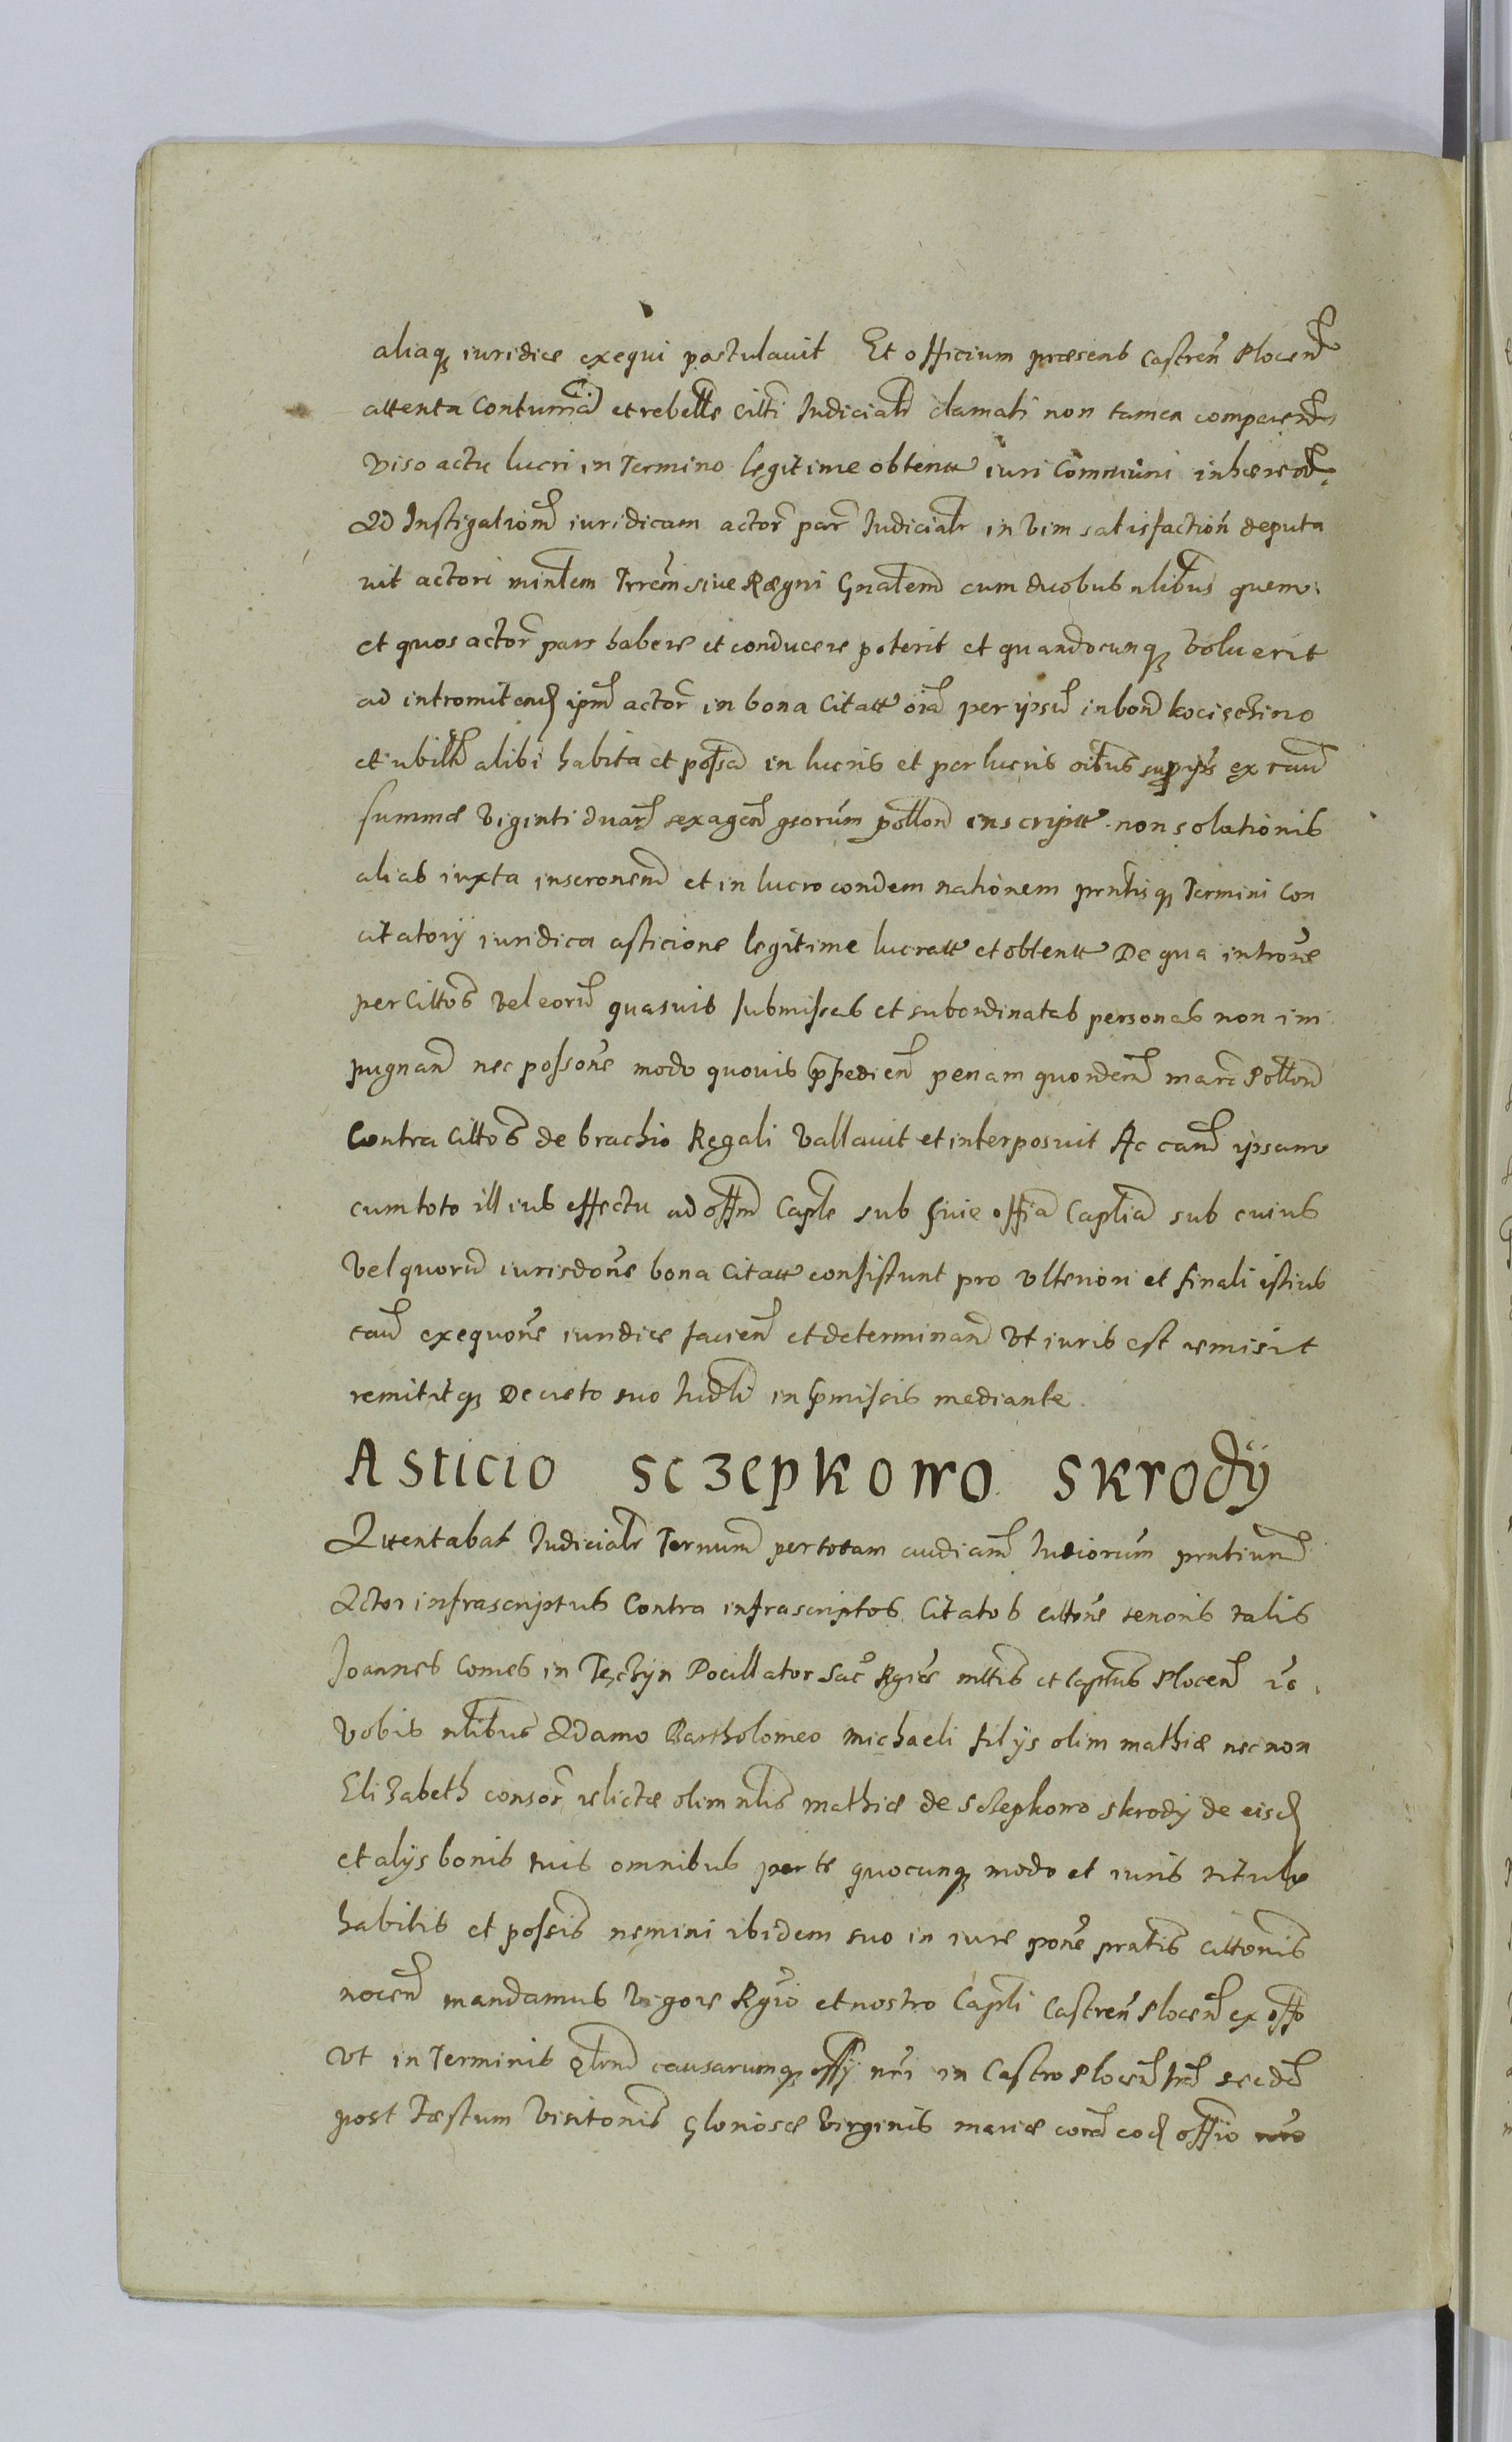 aliaq iuridice exequi postulauit Et officium præsens Castreñ Plocen
attenta Contuma et rebelle Citti Iudicialr clamati non tamen comparen
Viso actu lucri in Termino legitime obtentt iuri Communi inhæren
Ad Instigationem iuridicam actor par Iudicialr in vim satisfaction deputa
uit actori minlem Trrem siue Regni Gnalem cum duobus nlibus quem
et quos actor pars habere et conducere poterit et quandocunq Voluerit
ad intromitend ipm actor in bona Citatt oia per ipsu in bon kocischino
et ubilt alibi habita et possa in lucris et per lucris oibus ex cau
summæ Viginti duar sexagen grorum pollon inscriptt non solutionis
alias iuxta inscronem et in lucro condem nationem prntisq Termini Con
citatorij iuridica asticione legitime lucratt et obtentt De qua introne
per Cittos Vel eoru quasuis submissas et subordinatas personas non im
pugnan nec possone modo quouis ppedien penam quorden marc Pollon
Contra Cittos de brachio Regali Vallauit et interposuit Ac cau ipsam
cum toto illius effectu ad offm Caple sub siue offia Caplia sub cuius
Vel quoru iurisdone bona Citatt consistunt pro Ulteriori et finali istius
cau exequone iuridice facien et determinan Vt iuris est remisit
remititq Decreto suo Iudli in pmissis mediante
Asticio Sczepkowo Skrodÿ
Attentabat Iudicialr Termum per totam audiam Iudiciorum prntium
Actor infrascriptus Contra infrascriptos Citatos cittone tenoris talis
Joannes Comes in Teczyn Pocillator Sac Rgiæ mttis et Captus Plocen
Vobis nlibus Adamo Bartholomeo Michaeli filijs olim Mathiæ necnon
Elizabeth consor relictæ olim nlis Mathiæ de Sczepkowo Skrodÿ de eisd
et alijs bonis tuis omnibus per te quocunq modo et iuris titulo
habitis et possis nemini ibidem suo in iure pone pratis cittonis
nocen mandamus Vigore Rgio et nostro Capli Castren Plocen ex offo
Vt in Terminis causarumq offij nri in Castro Plocen
post Fæstum Visitonis Gloriosæ Virginis Mariæ cora eod offio